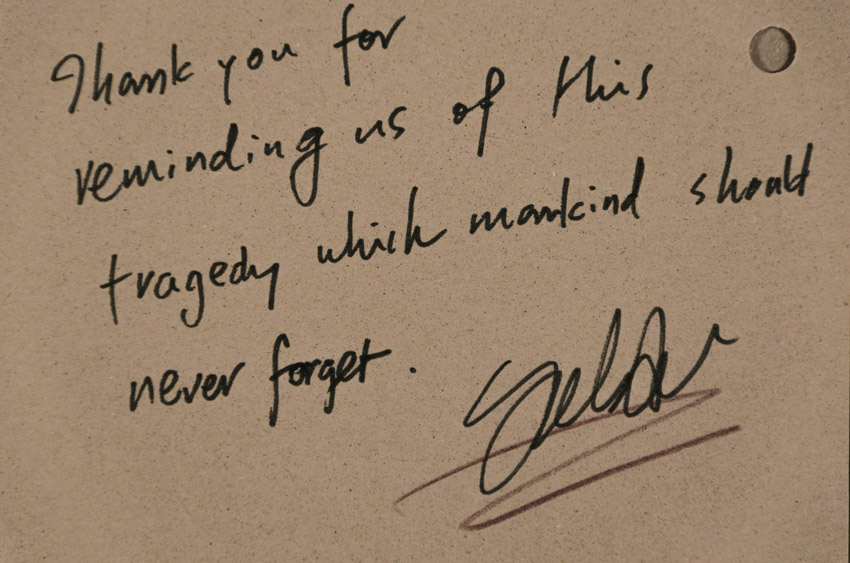 Thank you for
reminding us of this
tragedy which mankind should
never forget.